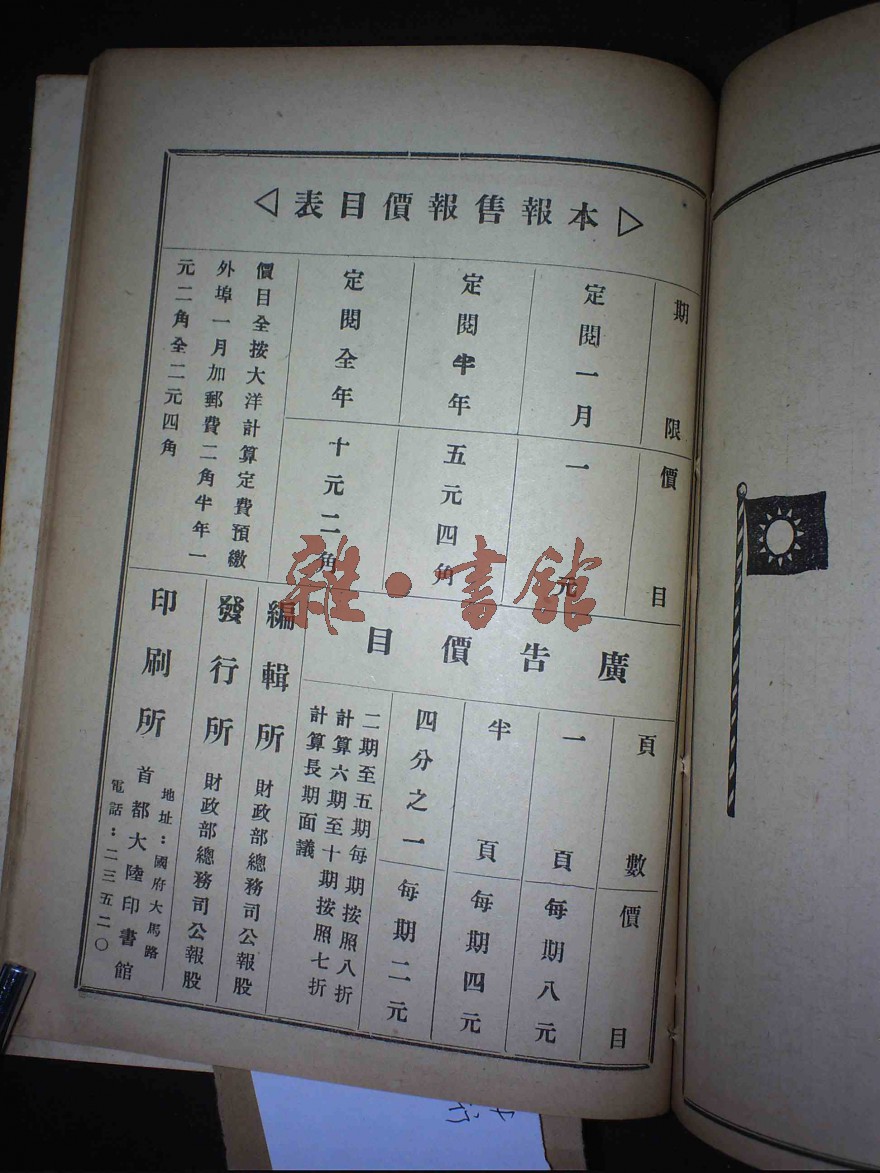 本報售報價目表
期限 價目
定閱一月 一元
定閱半年 五元四角
定閱全年 十元二角
價目全按大洋計算定費預繳
外埠一月加郵費二角半年一
元二角全二元四角
廣告價目
頁數 價目
一頁 每期八元
半頁 每期四元
四分之一 每期二元
二期至五期每期按照八折
計算六期至十期按照七折
計算長期面議
編輯所 財政部總務司公報股
發行所 財政部總務司公報股
印刷所 首都大陸印書館
地址：國府大馬路
電話：二三五二〇
雜·書館